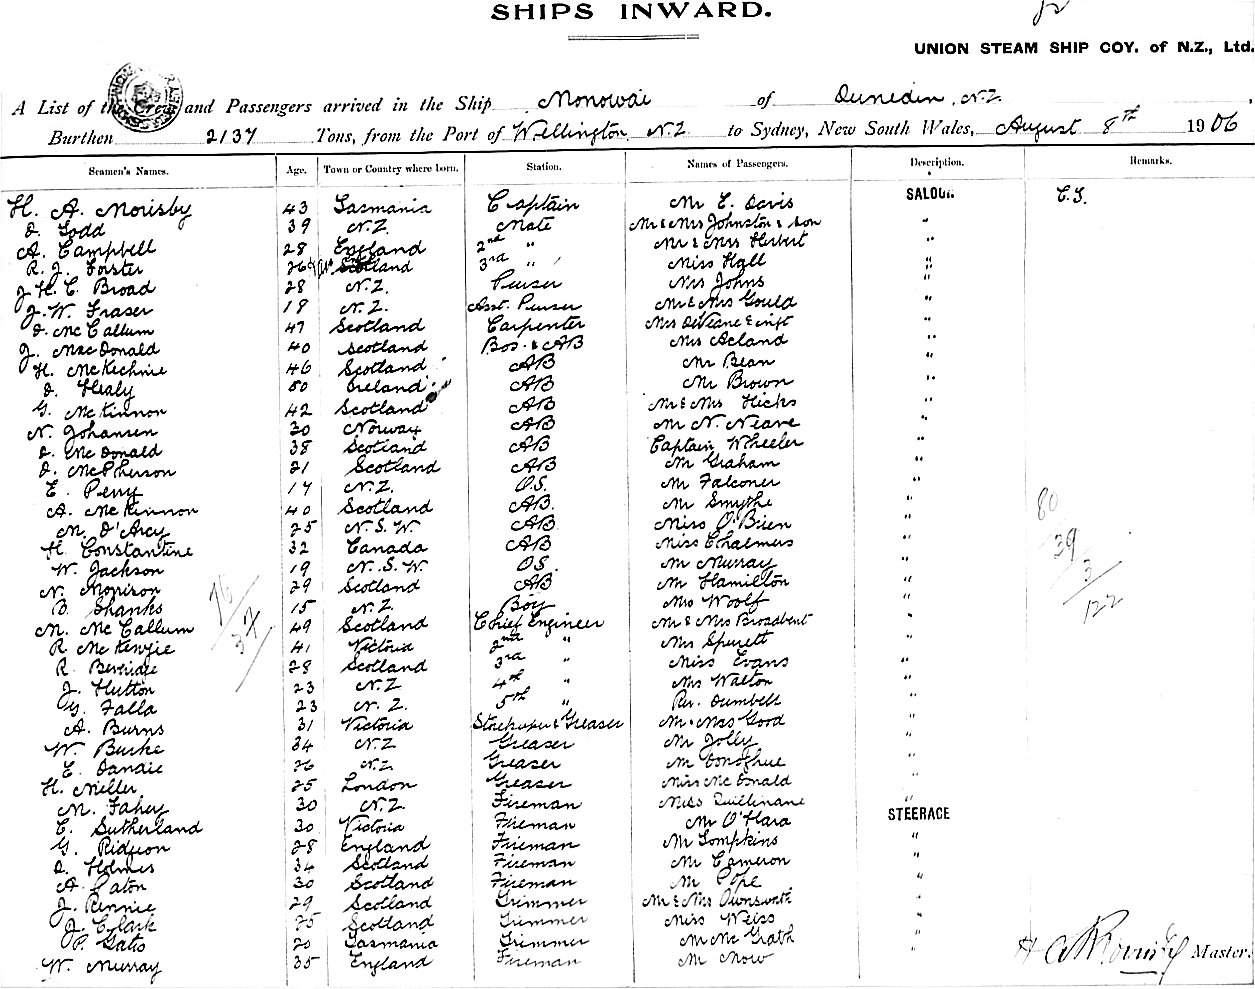 SHIPS INWARD.
UNION STEAM SHIP COY. of N.Z., Ltd.
A List of the Crew and Passengers arrived in the Ship Monowai of Dunedin, N.Z.
Burthen 2137 Tons, from the Port of Wellington N.Z to Sydney, New South Wales, August 8th 1906
Seamen's Names. Age. Town or Country where born. Station. Names of Passengers. Description. Remarks.
H. A. Morisby 43 Tasmania Captain Mr E. Davis SALOON C.S.
D. Todd 39 N.Z. Mate Mr & Mrs Johnston & son "
A. Campbell 28 England 2nd " Mr & Mrs Herbert "
R. J. Forster 26 Scotland 3rd " Miss Hall "
J. H. C. Broad 28 N.Z. Purser Mrs Johns "
J. W. Fraser 19 N.Z. Asst. Purser Mr & Mrs Gould "
D. McCallum 47 Scotland Carpenter Mrs & inft "
J. MacDonald 40 Scotland Bos. & AB Mrs Acland "
H. McKechnie 46 Scotland AB Mr Bean "
D. Healy 50 Ireland AB Mr Brown "
G. McKinnon 42 Scotland AB Mr & Mrs Hicks "
N. Johansen 30 Norway AB Mr N. Neave "
D. McDonald 38 Scotland AB Captain Wheeler "
D. McPherson 21 Scotland AB Mr Graham "
E. Perry 17 N.Z. O.S. Mr Falconer "
A. McKinnon 40 Scotland AB. Mr Smythe " 80
M. D'Arcy 25 N.S.W. AB. Miss O'Brien "
H. Constantine 32 Canada AB Miss Chalmers " 39
W. Jackson 19 N.S.W OS. Mr Murray " 3
N. Morrison 29 Scotland AB Mr Hamilton "
B. Shanks 15 N.Z. Boy Mrs Woolf " 122
M. McCallum 49 Scotland Chief Engineer Mr & Mrs Broadbent "
R McKenzie 41 Victoria 2nd " Mrs "
R. 28 Scotland 3rd " Miss Evans "
J. Hutton 23 N.Z 4th " Mrs Walton "
G. Falla 23 N.Z. 5th " Rev. Dumbell "
A. Burns 31 Victoria Storekeeper & Greaser Mr & Mrs Good "
W. Burke 34 N.Z Greaser Mr Jolly "
E. 26 N.Z Greaser Mr Donoghue "
H. Miller 25 London Greaser Miss McDonald "
M. Fahey 30 N.Z. Fireman Miss Quillinane "
C. Sutherland 30 Victoria Fireman Mr O'Hara STEERAGE
G. 28 England Fireman Mr Tompkins "
D. Holmes 34 Scotland Fireman Mr Cameron "
A. Paton 30 Scotland Fireman Mr Pope "
J. Rennie 29 Scotland Trimmer Mr & Mrs "
J. Clark 25 Scotland Trimmer Miss Weiss "
P. Gates 20 Tasmania Trimmer Mr McGrath "
W. Murray 35 England Fireman Mr Master.